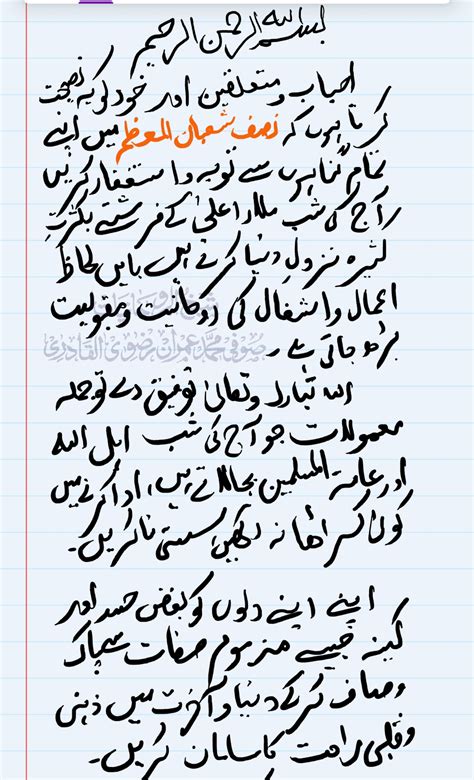 بسم اللہ الرحمن الرحیم
احباب و متعلقین اور خود کو یہ نصیحت
کرتا ہوں کہ نصف شعبان المعظم میں اپنے
تمام گناہوں سے توبہ و استغفار کریں
آج کی شب ملاء اعلیٰ کے فرشتے بکثرتِ
کثیرہ نزولِ دنیا کرتے ہیں بایں لحاظ
اعمال و اشغال کی روحانیت و مقبولیت
بڑھ جاتی ہے۔
صوفی محمد عمران رضوی القادری
اللہ تبارک و تعالیٰ توفیق دے تو جملہ
معمولات جو آج کی شب اہل اللہ
اور عامۃ المسلمین بجا لاتے ہیں، ادا کرنے میں
کوئی کسر اٹھا نہ رکھیں سستی نا کریں۔
اپنے اپنے دلوں کو بغض حسد اور
کینہ جیسے مذموم صفات سے پاک
و صاف کر کے دنیا و آخرت میں ذہنی
و قلبی راحت کا سامان کریں۔